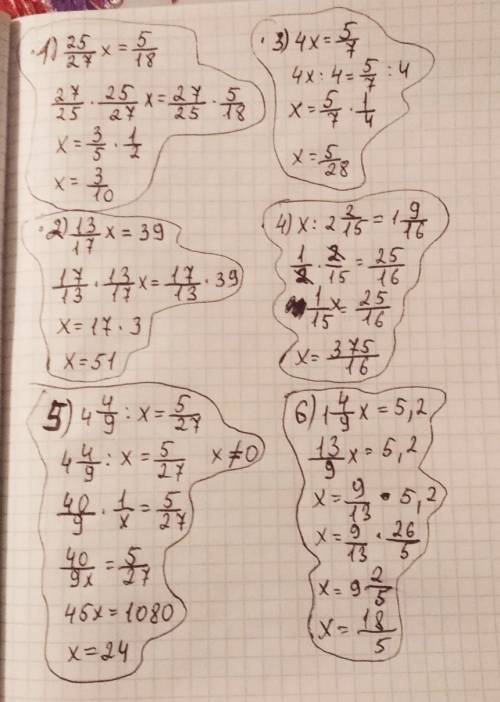 1) 25/27 x = 5/18
27/25 · 25/27 x = 27/25 · 5/18
x = 3/5 · 1/2
x = 3/10
2) 13/17 x = 39
17/13 · 13/17 x = 17/13 · 39
x = 17 · 3
x = 51
3) 4x = 5/7
4x : 4 = 5/7 : 4
x = 5/7 · 1/4
x = 5/28
4) x : 2 2/15 = 1 9/16
1/2 · 2/15 = 25/16
1/15 x = 25/16
x = 375/16
5) 4 4/9 : x = 5/27
4 4/9 : x = 5/27 x ≠ 0
40/9 · 1/x = 5/27
40/9x = 5/27
45x = 1080
x = 24
6) 1 4/9 x = 5,2
13/9 x = 5,2
x = 9/13 · 5,2
x = 9/13 · 26/5
x = 9 2/5
x = 18/5